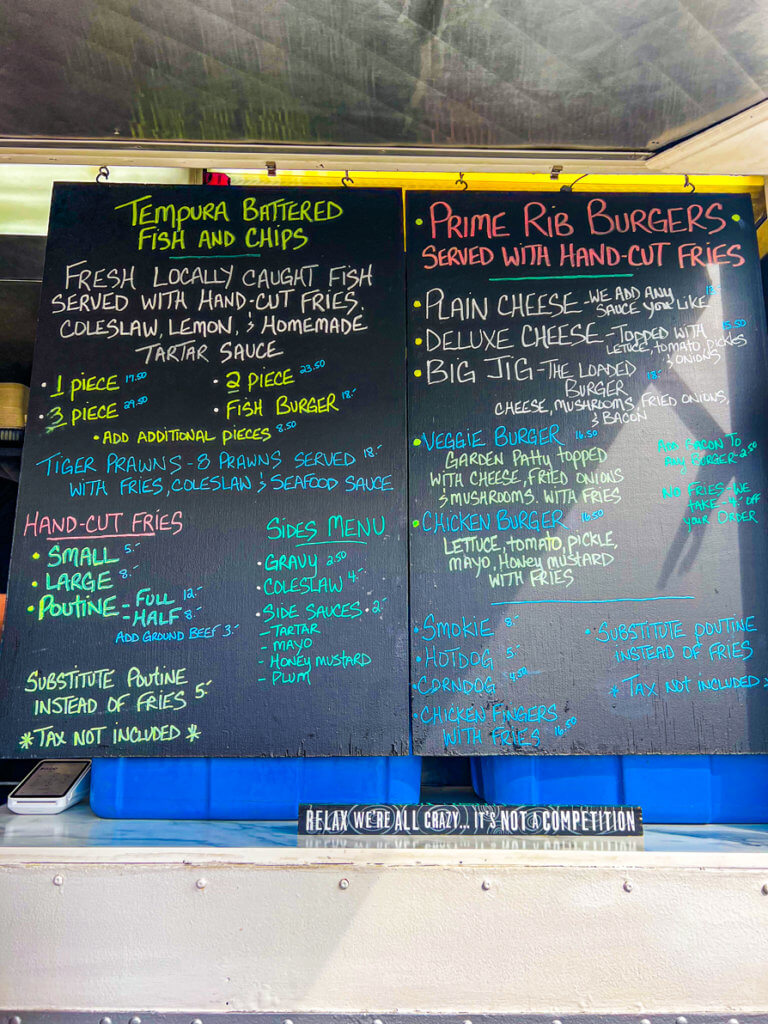 TEMPURA BATTERED
FISH AND CHIPS
FRESH LOCALLY CAUGHT FISH
SERVED WITH HAND-CUT FRIES,
COLESLAW, LEMON, & HOMEMADE
TARTAR SAUCE
• 1 PIECE 17.50 • 2 PIECE 23.50
• 3 PIECE 29.50 • FISH BURGER 18.-
• ADD ADDITIONAL PIECES 8.50
TIGER PRAWNS - 8 PRAWNS SERVED 18.-
WITH FRIES, COLESLAW & SEAFOOD SAUCE
HAND-CUT FRIES
• SMALL 5.-
• LARGE 8.-
• POUTINE - FULL 12.-
- HALF 8.-
ADD GROUND BEEF 3.-
SUBSTITUTE POUTINE
INSTEAD OF FRIES 5.-
* TAX NOT INCLUDED *
SIDES MENU
• GRAVY 2.50
• COLESLAW 4.-
• SIDE SAUCES • 2.-
- TARTAR
- MAYO
- HONEY MUSTARD
- PLUM
• PRIME RIB BURGERS •
SERVED WITH HAND-CUT FRIES
• PLAIN CHEESE - WE ADD ANY
SAUCE YOU LIKE!
• DELUXE CHEESE - TOPPED WITH 15.50
LETUCE, TOMATO, PICKLES
& ONIONS
• BIG JIG - THE LOADED 18.-
BURGER
CHEESE, MUSHROOMS, FRIED ONIONS,
& BACON
• VEGGIE BURGER 16.50
GARDEN PATTY TOPPED
WITH CHEESE, FRIED ONIONS
& MUSHROOMS. WITH FRIES
• CHICKEN BURGER 16.50
LETTUCE, TOMATO, PICKLE,
MAYO, HONEY MUSTARD
WITH FRIES
ADD BACON TO
ANY BURGER - 2.50
NO FRIES - WE
TAKE - 4.- OFF
YOUR ORDER
• SMOKIE 8.-
• HOTDOG 5.-
• CORNDOG 4.50
• CHICKEN FINGERS
WITH FRIES 16.50
• SUBSTITUTE POUTINE
INSTEAD OF FRIES
* TAX NOT INCLUDED *
RELAX WE'RE ALL CRAZY... IT'S NOT A COMPETITION